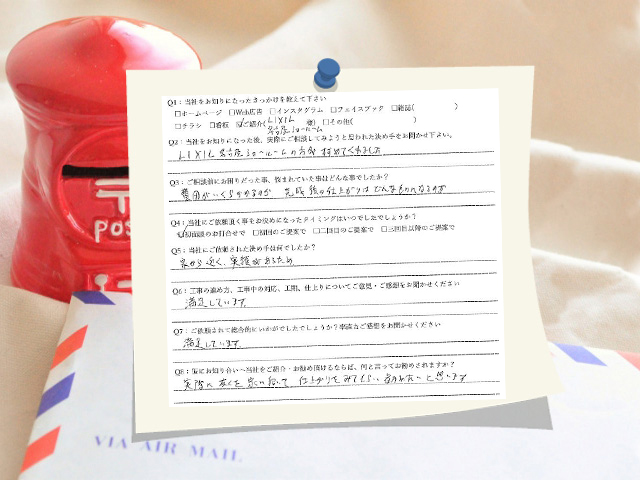 Q1：当社をお知りになったきっかけを教えて下さい
□ホームページ □Web広告 □インスタグラム □フェイスブック □雑誌( )
□チラシ □看板 ☑ご紹介(LIXIL 様) □その他( )
名古屋ショールーム
Q2：当社をお知りになった後、実際にご相談してみようと思われた決め手をお聞かせ下さい。
LIXIL 名古屋ショールームの方が 薦めてくれました
Q3：ご相談前にお困りだった事、悩まれていた事はどんな事でしたか？
費用がいくらかかるのか 完成後の仕上がりはどんなものになるのか
Q4：当社にご依頼頂く事をお決めになったタイミングはいつでしたでしょうか？
☑初回面談のお打合せで □初回のご提案で □二回目のご提案で □三回目以降のご提案で
Q5：当社にご依頼された決め手は何でしたか？
家から近く、実績があるため
Q6：工事の進め方、工事中の対応、工期、仕上りについてご意見・ご感想をお聞かせください
満足しています
Q7：ご依頼されて総合的にいかがでしたでしょうか？率直なご感想をお聞かせください
満足しています
Q8：仮にお知り合いへ当社をご紹介・お勧め頂けるならば、何と言ってお勧めされますか？
実際に 我が家に 来て 仕上がりをみてもらい 思います
POS
VIA AIR MAIL